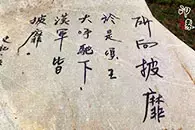 所向披靡
於是項王
大呼馳下
漢軍皆
披靡